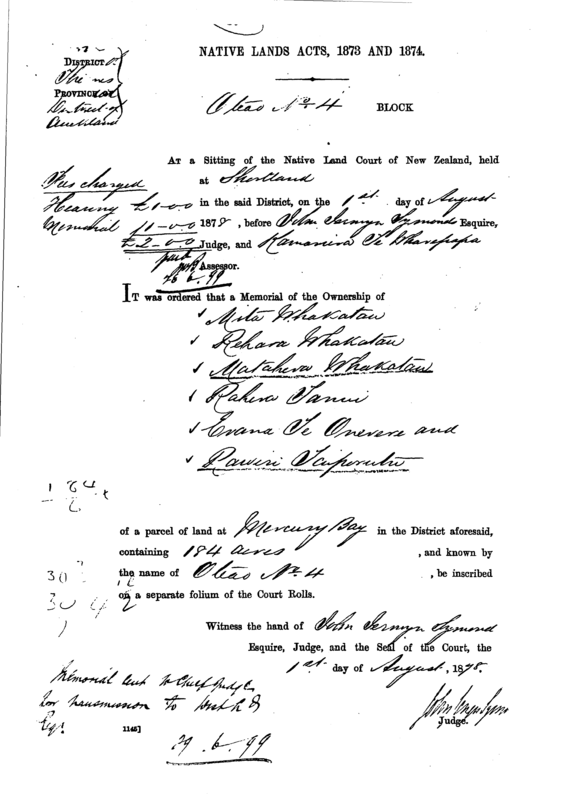 NATIVE LANDS ACTS, 1873 AND 1874.
DISTRICT of
Thames
PROVINCIAL
District of
Auckland
Oteao No 4 BLOCK
AT a Sitting of the Native Land Court of New Zealand, held
at Shortland
Fees charged
Hearing £1-0-0 in the said District, on the 1st. day of August
Memorial £1-0-0 1878, before John Jermyn Symonds Esquire,
£2-0-0 Judge, and Te
paid Assessor.
26.6.99
IT was ordered that a Memorial of the Ownership of
Mita Whakatau
Rehara Whakatau
Matahera Whakatau
Rahera Tanui
Erana Te Onerere and
Rawiri
184
of a parcel of land at Mercury Bay in the District aforesaid,
containing 184 acres, and known by
the name of Oteao No. 4, be inscribed
on a separate folium of the Court Rolls.
30
30
Witness the hand of John Jermyn Symond
Esquire, Judge, and the Seal of the Court, the
1st. day of August, 1878.
Memorial sent to Chief Judge
for transmission to
Judge.
1145]
29.6.99